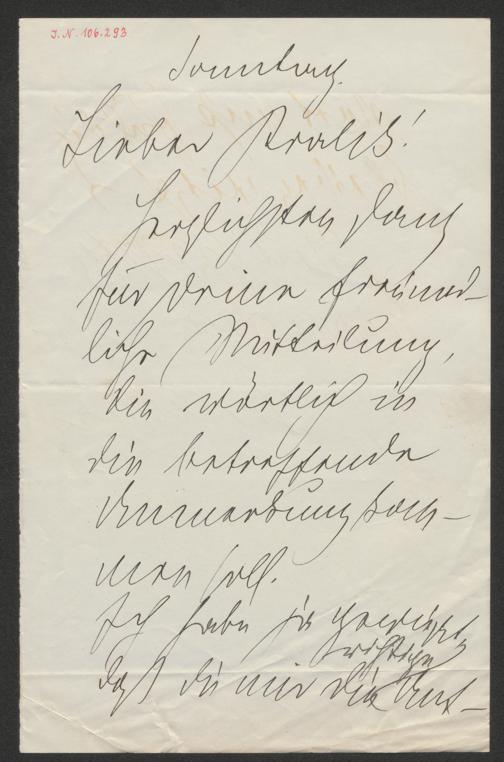 J. N. 106.293
Sonntag.
Lieber Kralik!
Herzlichsten Dank
für Deine freund-
liche Mitteilung,
die wörtlich in
die betreffende
Anmerkung kom-
men soll.
Ich habe ja gewußt,
richtige
daß Du mir die Ant-